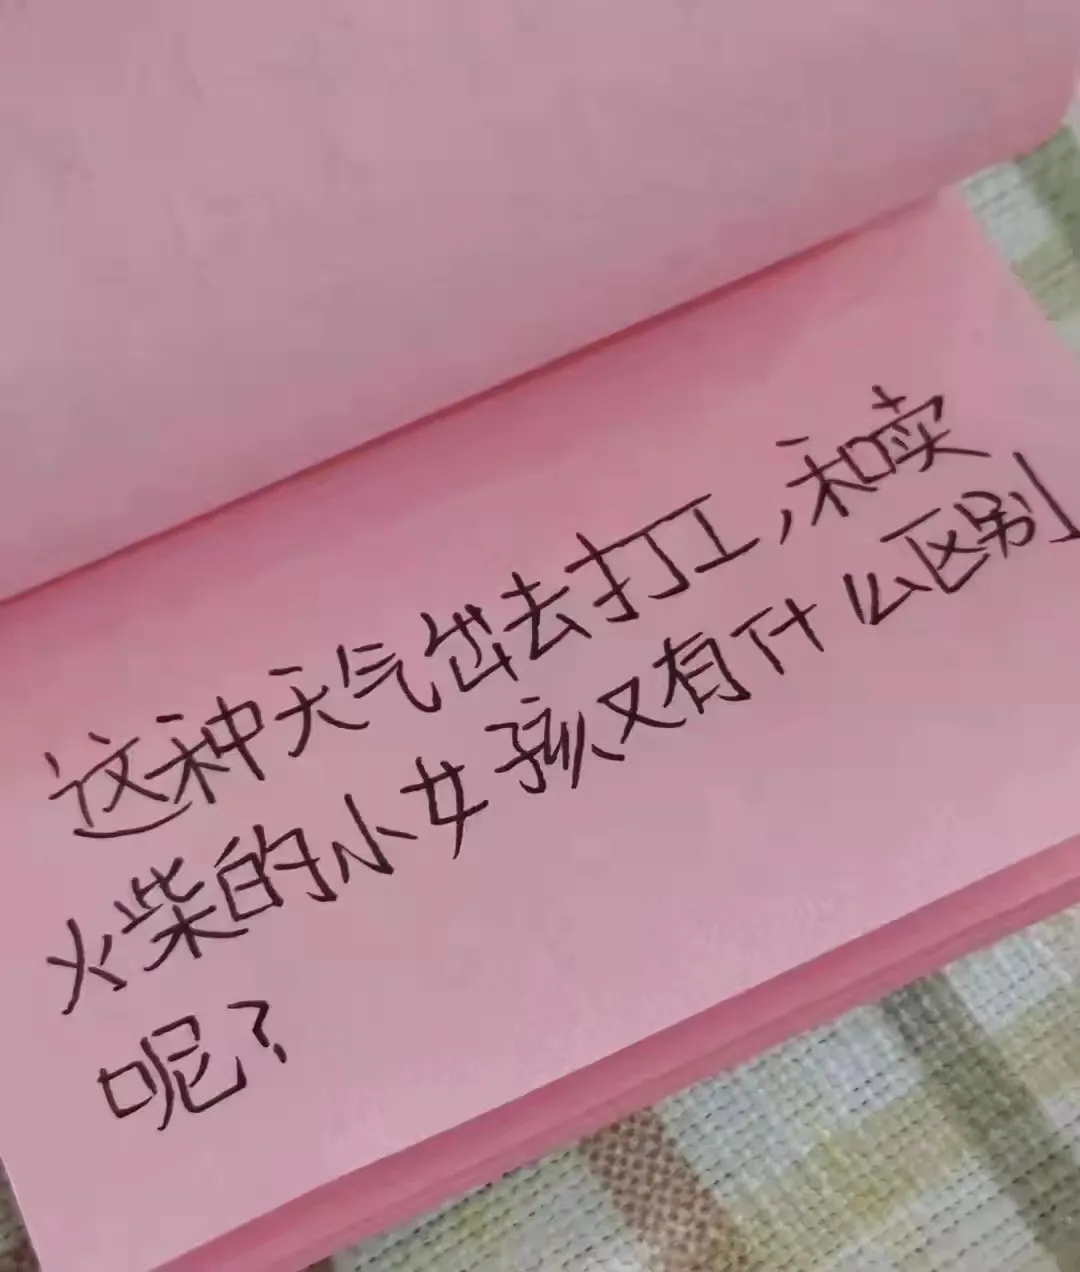 这种天气出去打工,和卖
火柴的小女孩又有什么区别
呢?